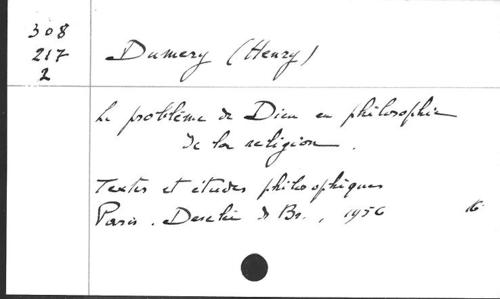 308
217
2
Dumery (Henry)
Le problème de Dieu en philosophie
de la religion.
Textes et études philosophiques
Paris. Desclée de Br., 1956
16